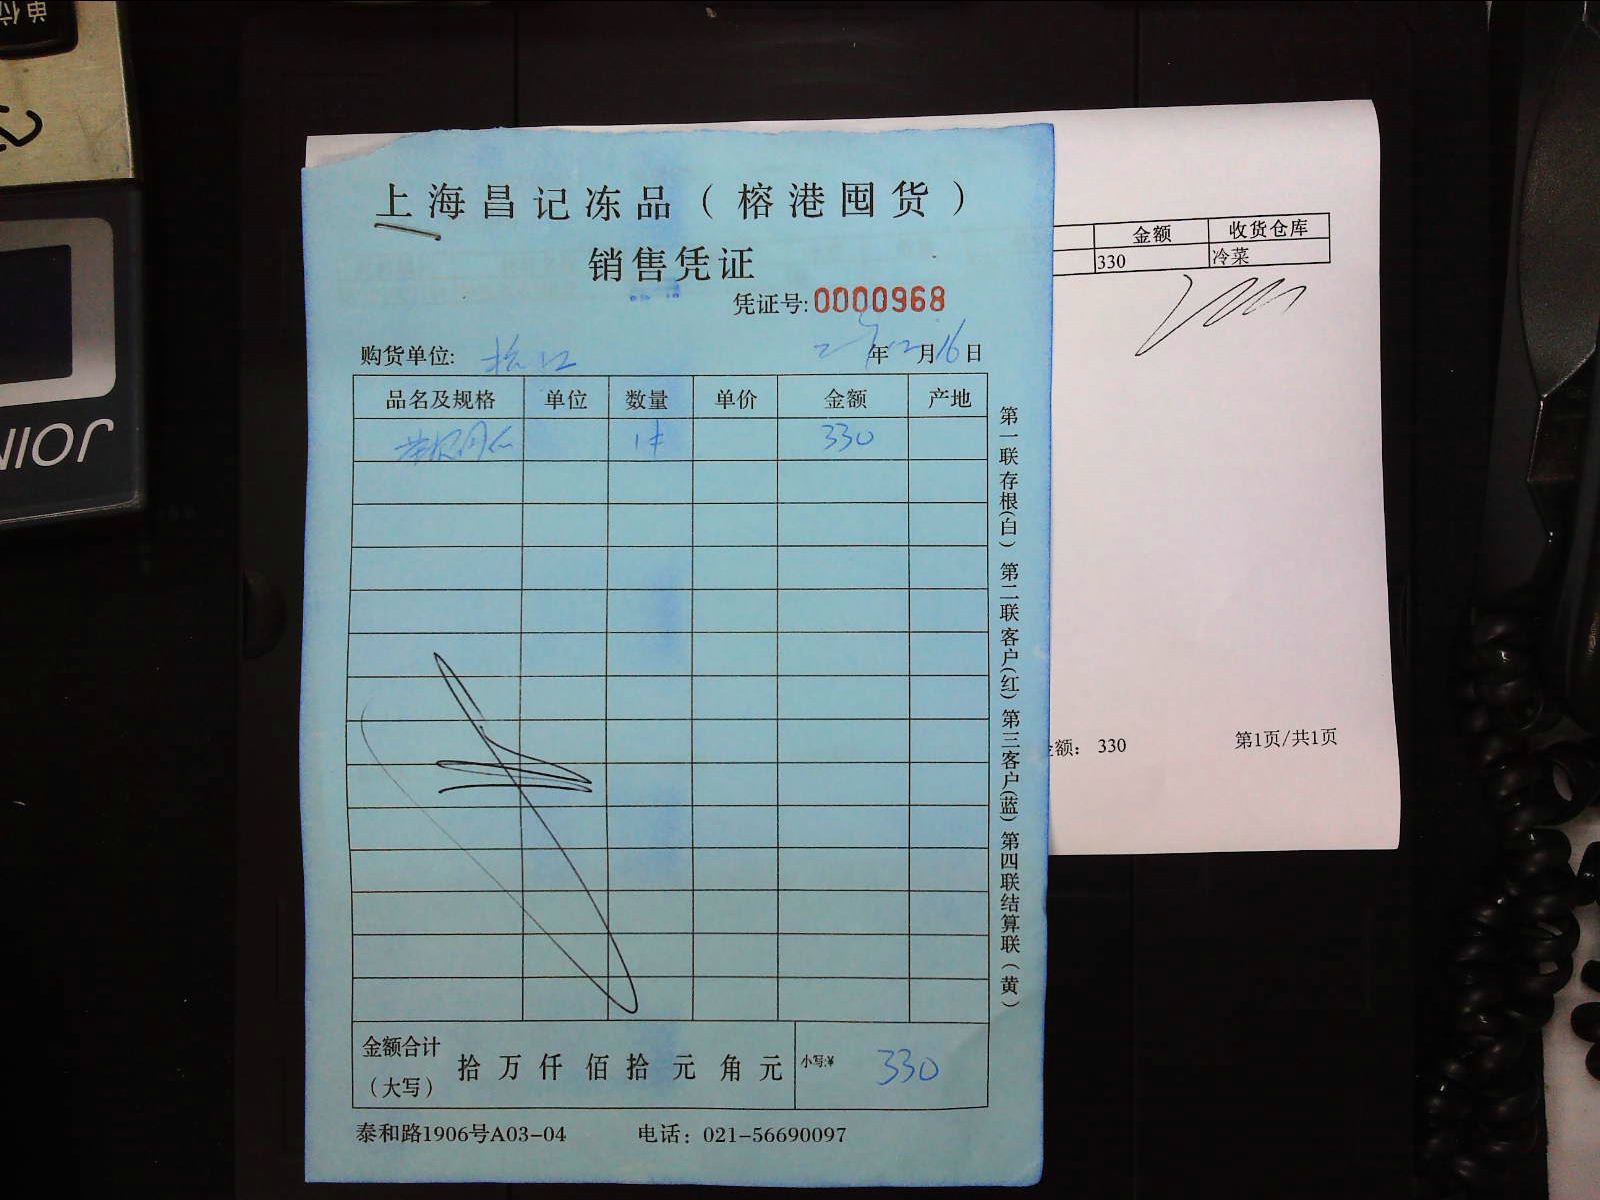 上海昌记冻品（榕港囤货）
销售凭证
凭证号:0000968
购货单位:
年12月16日
品名及规格 单位 数量 单价 金额 产地
1件 330
第一联存根(白) 第二联客户(红) 第三客户(蓝) 第四联结算联(黄)
金额合计
(大写)
拾 万 仟 佰 拾 元 角 元
小写:¥ 330
泰和路1906号A03-04 电话：021-56690097
金额 收货仓库
330 冷菜
额： 330 第1页/共1页
单位
JOIN